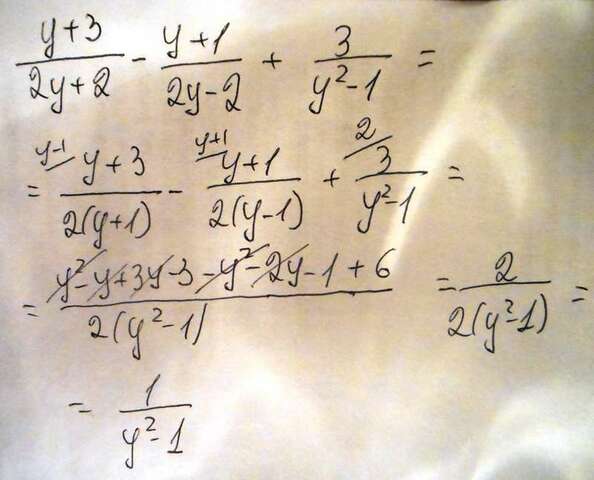 (y+3)/(2y+2) - (y+1)/(2y-2) + 3/(y²-1) =
= y-1/ (y+3)/(2(y+1)) - y+1/ (y+1)/(2(y-1)) + 2/ 3/(y²-1) =
= (y²-y+3y-3-y²-2y-1+6)/(2(y²-1)) = 2/(2(y²-1)) =
= 1/(y²-1)